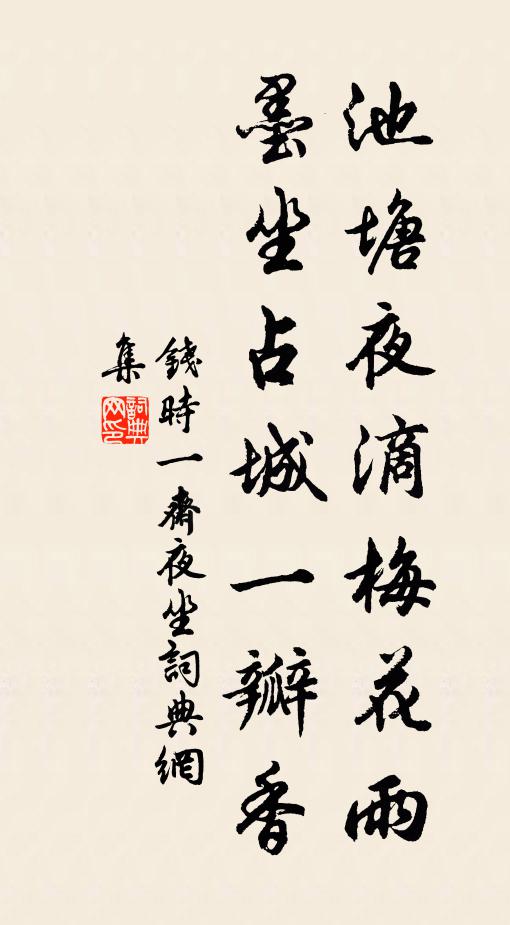 池塘夜滴梅花雨
墨坐占城一瓣香
錢時一齋夜坐詞典網
集
詞典网印